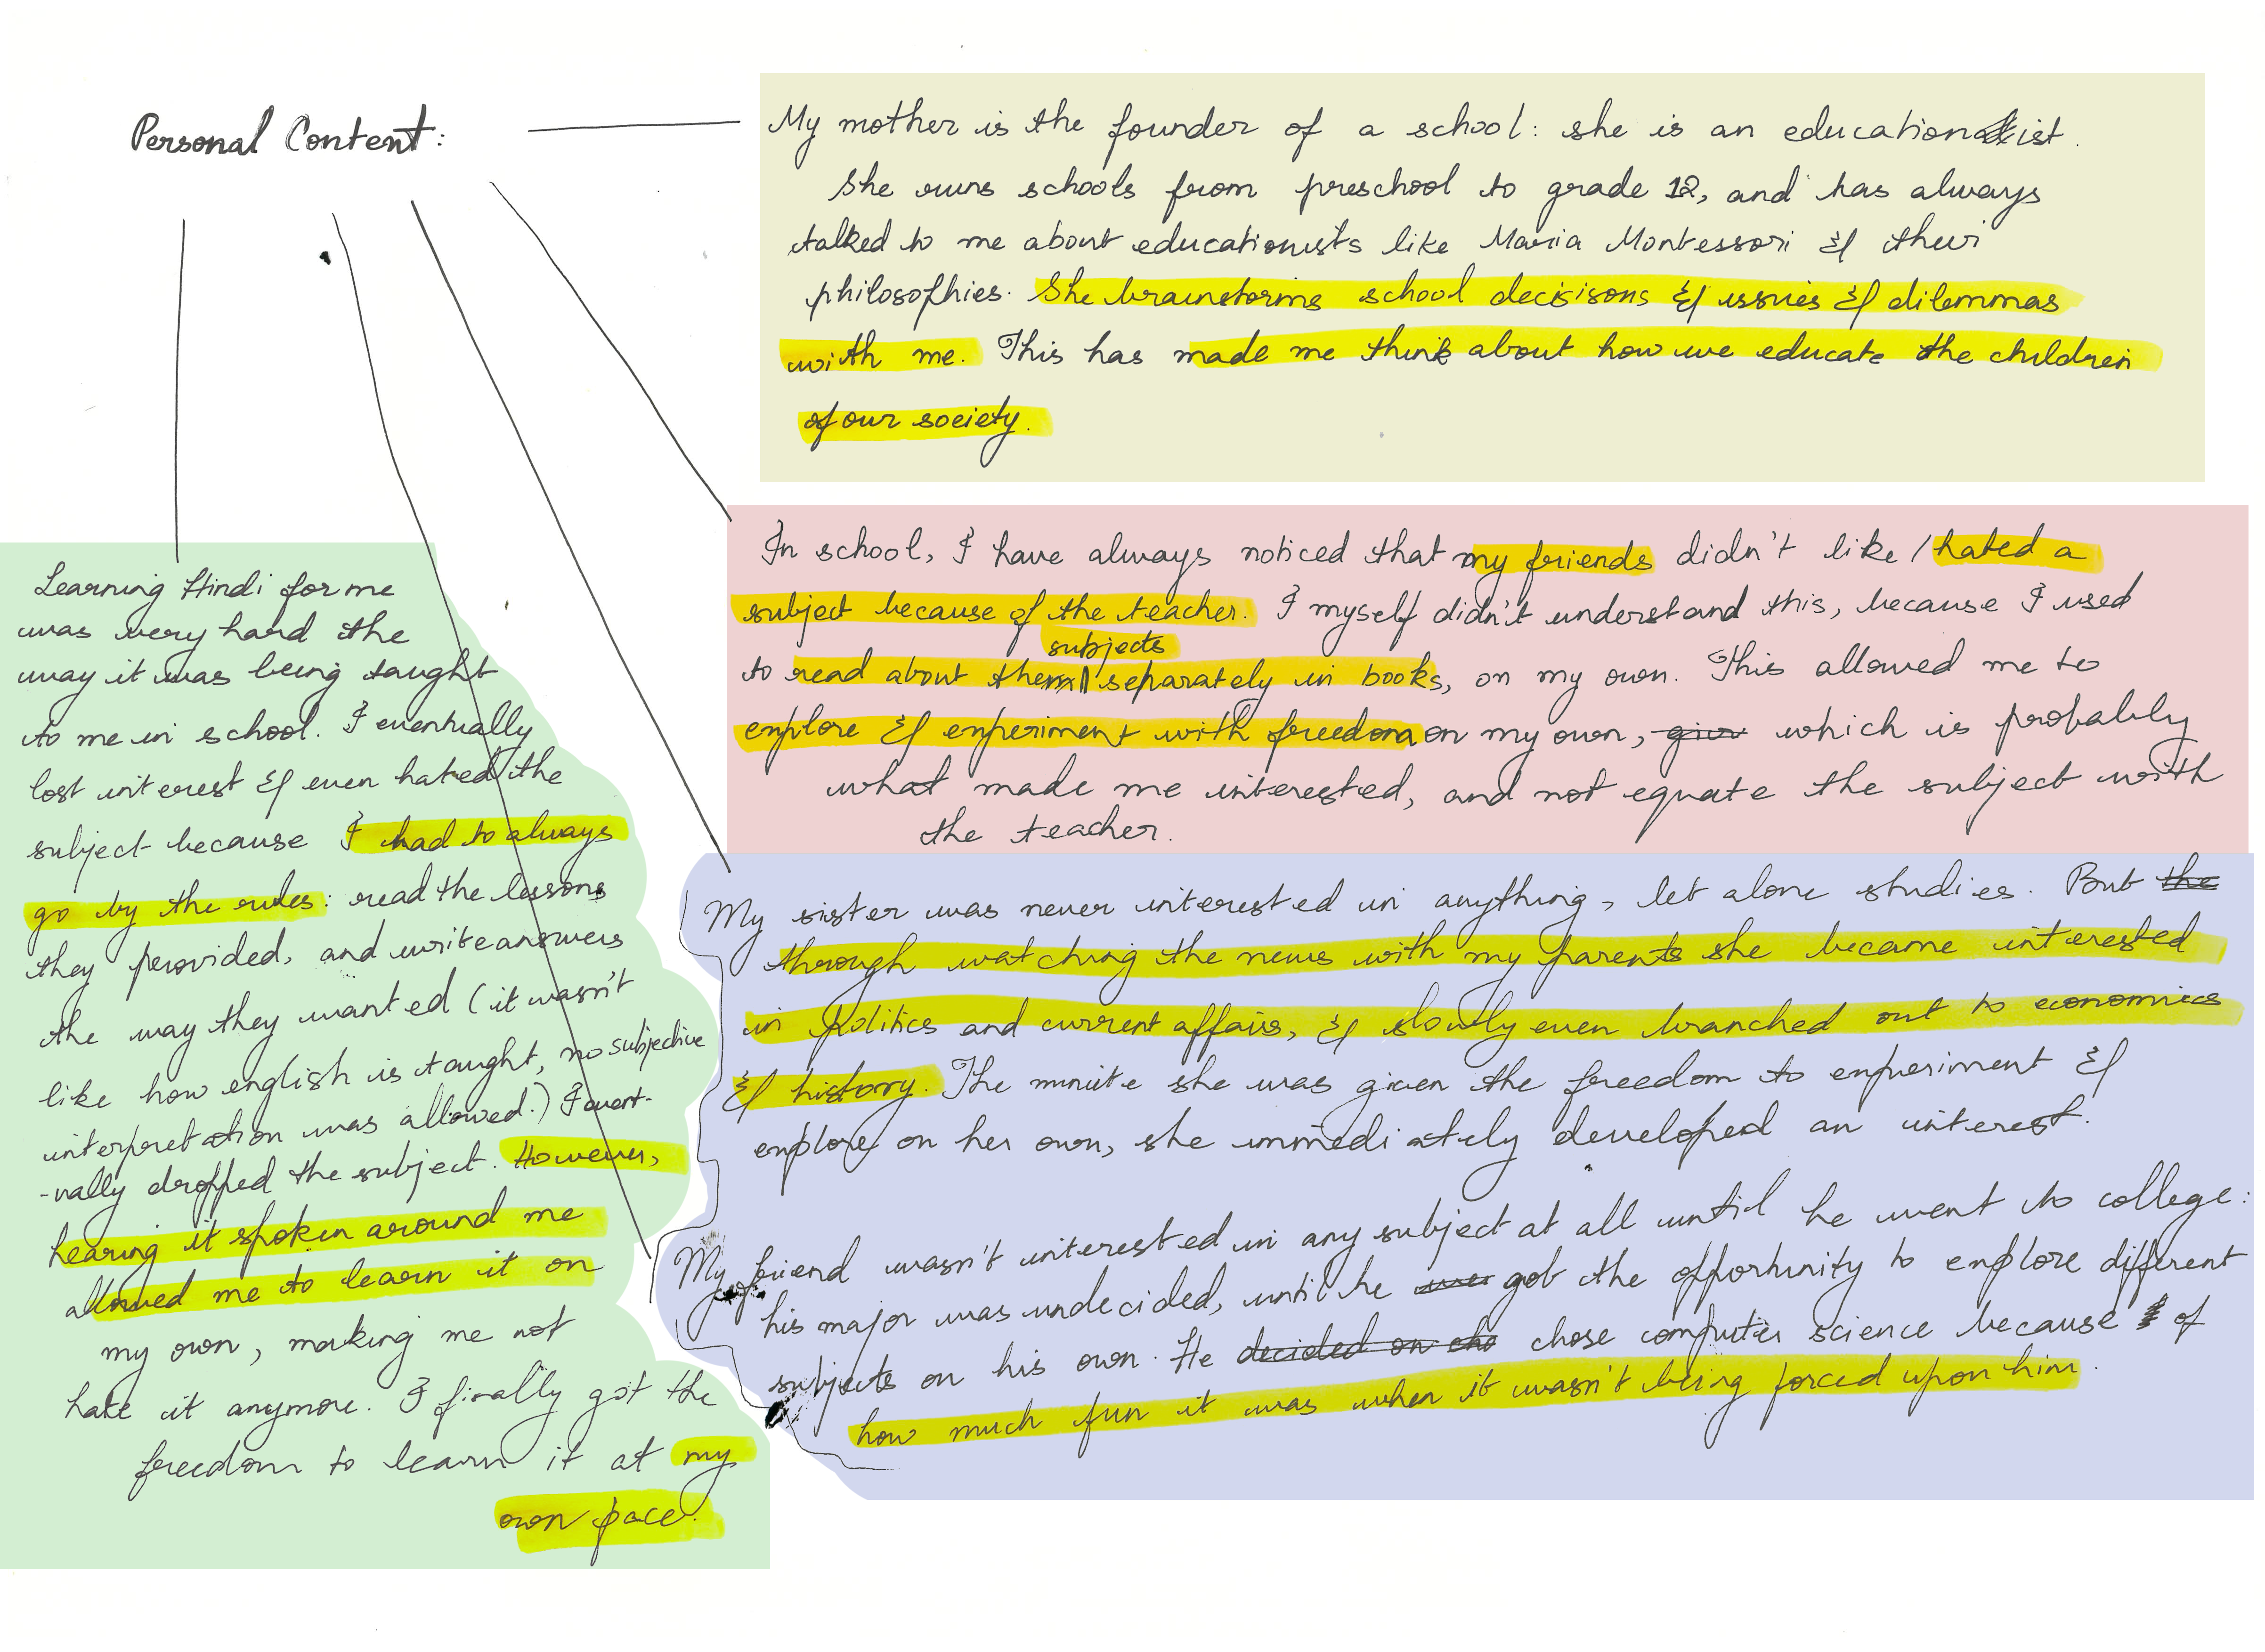 Personal Content:
My mother is the founder of a school: she is an educationist.
She runs schools from preschool to grade 12, and has always
talked to me about educationists like Maria Montessori & their
philosophies. She brainstorms school decisisons & issues & dilemmas
with me. This has made me think about how we educate the children
of our society.
In school, I have always noticed that my friends didn't like / hated a
subject because of the teacher. I myself didn't understand this, because I used
subjects
to read about them separately in books, on my own. This allowed me to
explore & experiment with freedom on my own, which is probably
what made me interested, and not equate the subject with
the teacher.
My sister was never interested in anything, let alone studies. But the
through watching the news with my parents she became interested
in politics and current affairs, & slowly even branched out to economics
& history. The minute she was given the freedom to experiment &
explore on her own, she immediately developed an interest.
My friend wasn't interested in any subject at all until he went to college:
his major was undecided, until he got the opportunity to explore different
subjects on his own. He decided on chose computer science because of
how much fun it was when it wasn't being forced upon him.
Learning Hindi for me
was very hard the
way it was being taught
to me in school. I eventually
lost interest & even hated the
subject because I had to always
go by the rules: read the lessons
they provided, and write answers
the way they wanted (it wasn't
like how english is taught, no subjective
interpretation was allowed.) I event-
-ually dropped the subject. However,
hearing it spoken around me
allowed me to learn it on
my own, making me not
hate it anymore. I finally got the
freedom to learn it at my
own pace.